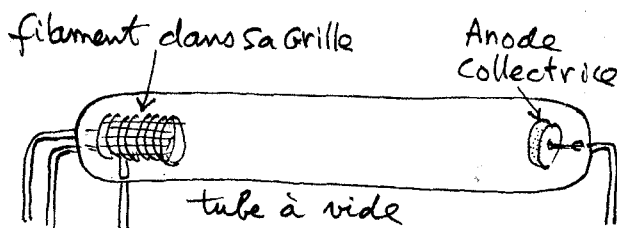 filament dans sa Grille
Anode
Collectrice
tube à vide